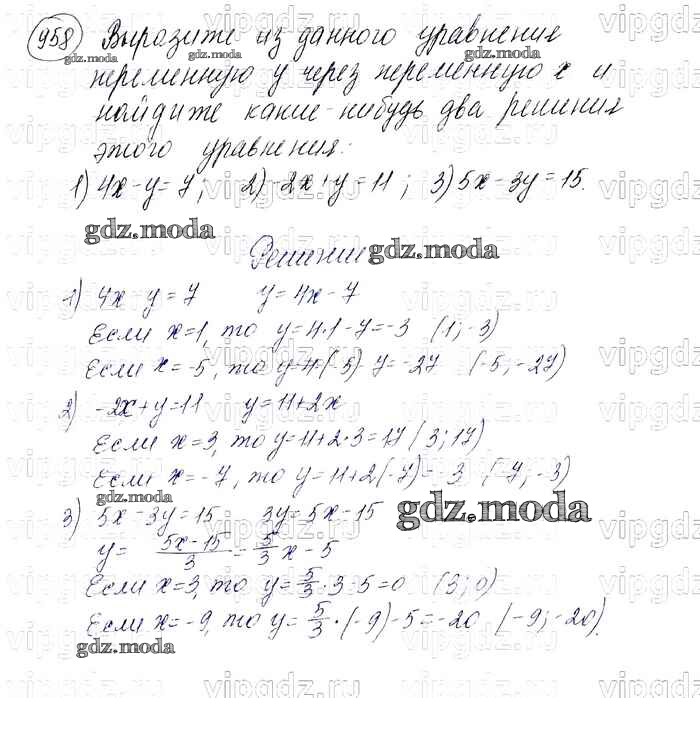 958 Выразите из данного уравнения
переменную y через переменную x и
найдите какие-нибудь два решения
этого уравнения:
1) 4x-y=7; 2) -2x+y=11; 3) 5x-3y=15.
gdz.moda
Решение
gdz.moda
1) 4x-y=7 y=4x-7
Если x=1, то y=4·1-7=-3 (1;-3)
Если x=-5, то y=4·(-5)-7=-27 (-5;-27)
2) -2x+y=11 y=11+2x
Если x=3, то y=11+2·3=17 (3;17)
Если x=-7, то y=11+2(-7)=-3 (-7;-3)
gdz.moda
gdz.moda
3) 5x-3y=15 3y=5x-15
y= 5x-15/3 = 5/3 x-5
Если x=3, то y=5/3·3-5=0 (3;0)
Если x=-9, то y=5/3·(-9)-5=-20 (-9;-20).
gdz.moda
vipgdz.ru